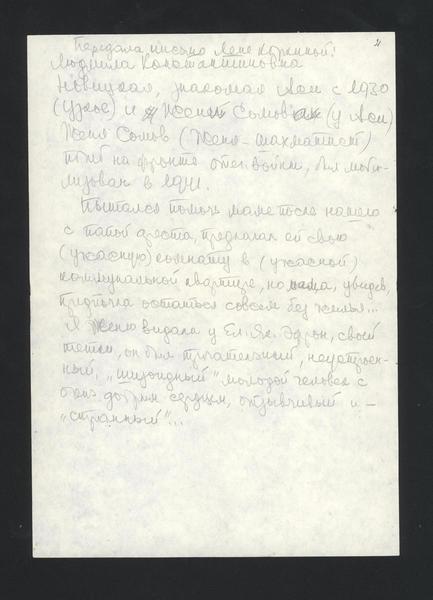 Передала письмо Лене Коркиной:
Людмила Константиновна
Новицкая, знакомая Али с 1930
(Узкое) и Жени Сомов (у Али)
Женя Сомов (Женя-шахматист)
погиб на фронте отеч. войны, был моби-
лизован в 1941.
Пытался помочь маме после нашего
с папой ареста, предлагал ей свою
(ужасную) комнату в (ужасной)
коммунальной квартире, но мама, увидев,
предпочла остаться совсем без жилья...
Я Женю видала у Ел. Як. Эфрон, своей
тетки, он был трогательный, неустроен-
ный, „шизоидный" молодой человек с
очень добрым сердцем, отзывчивый и —
„странный"...